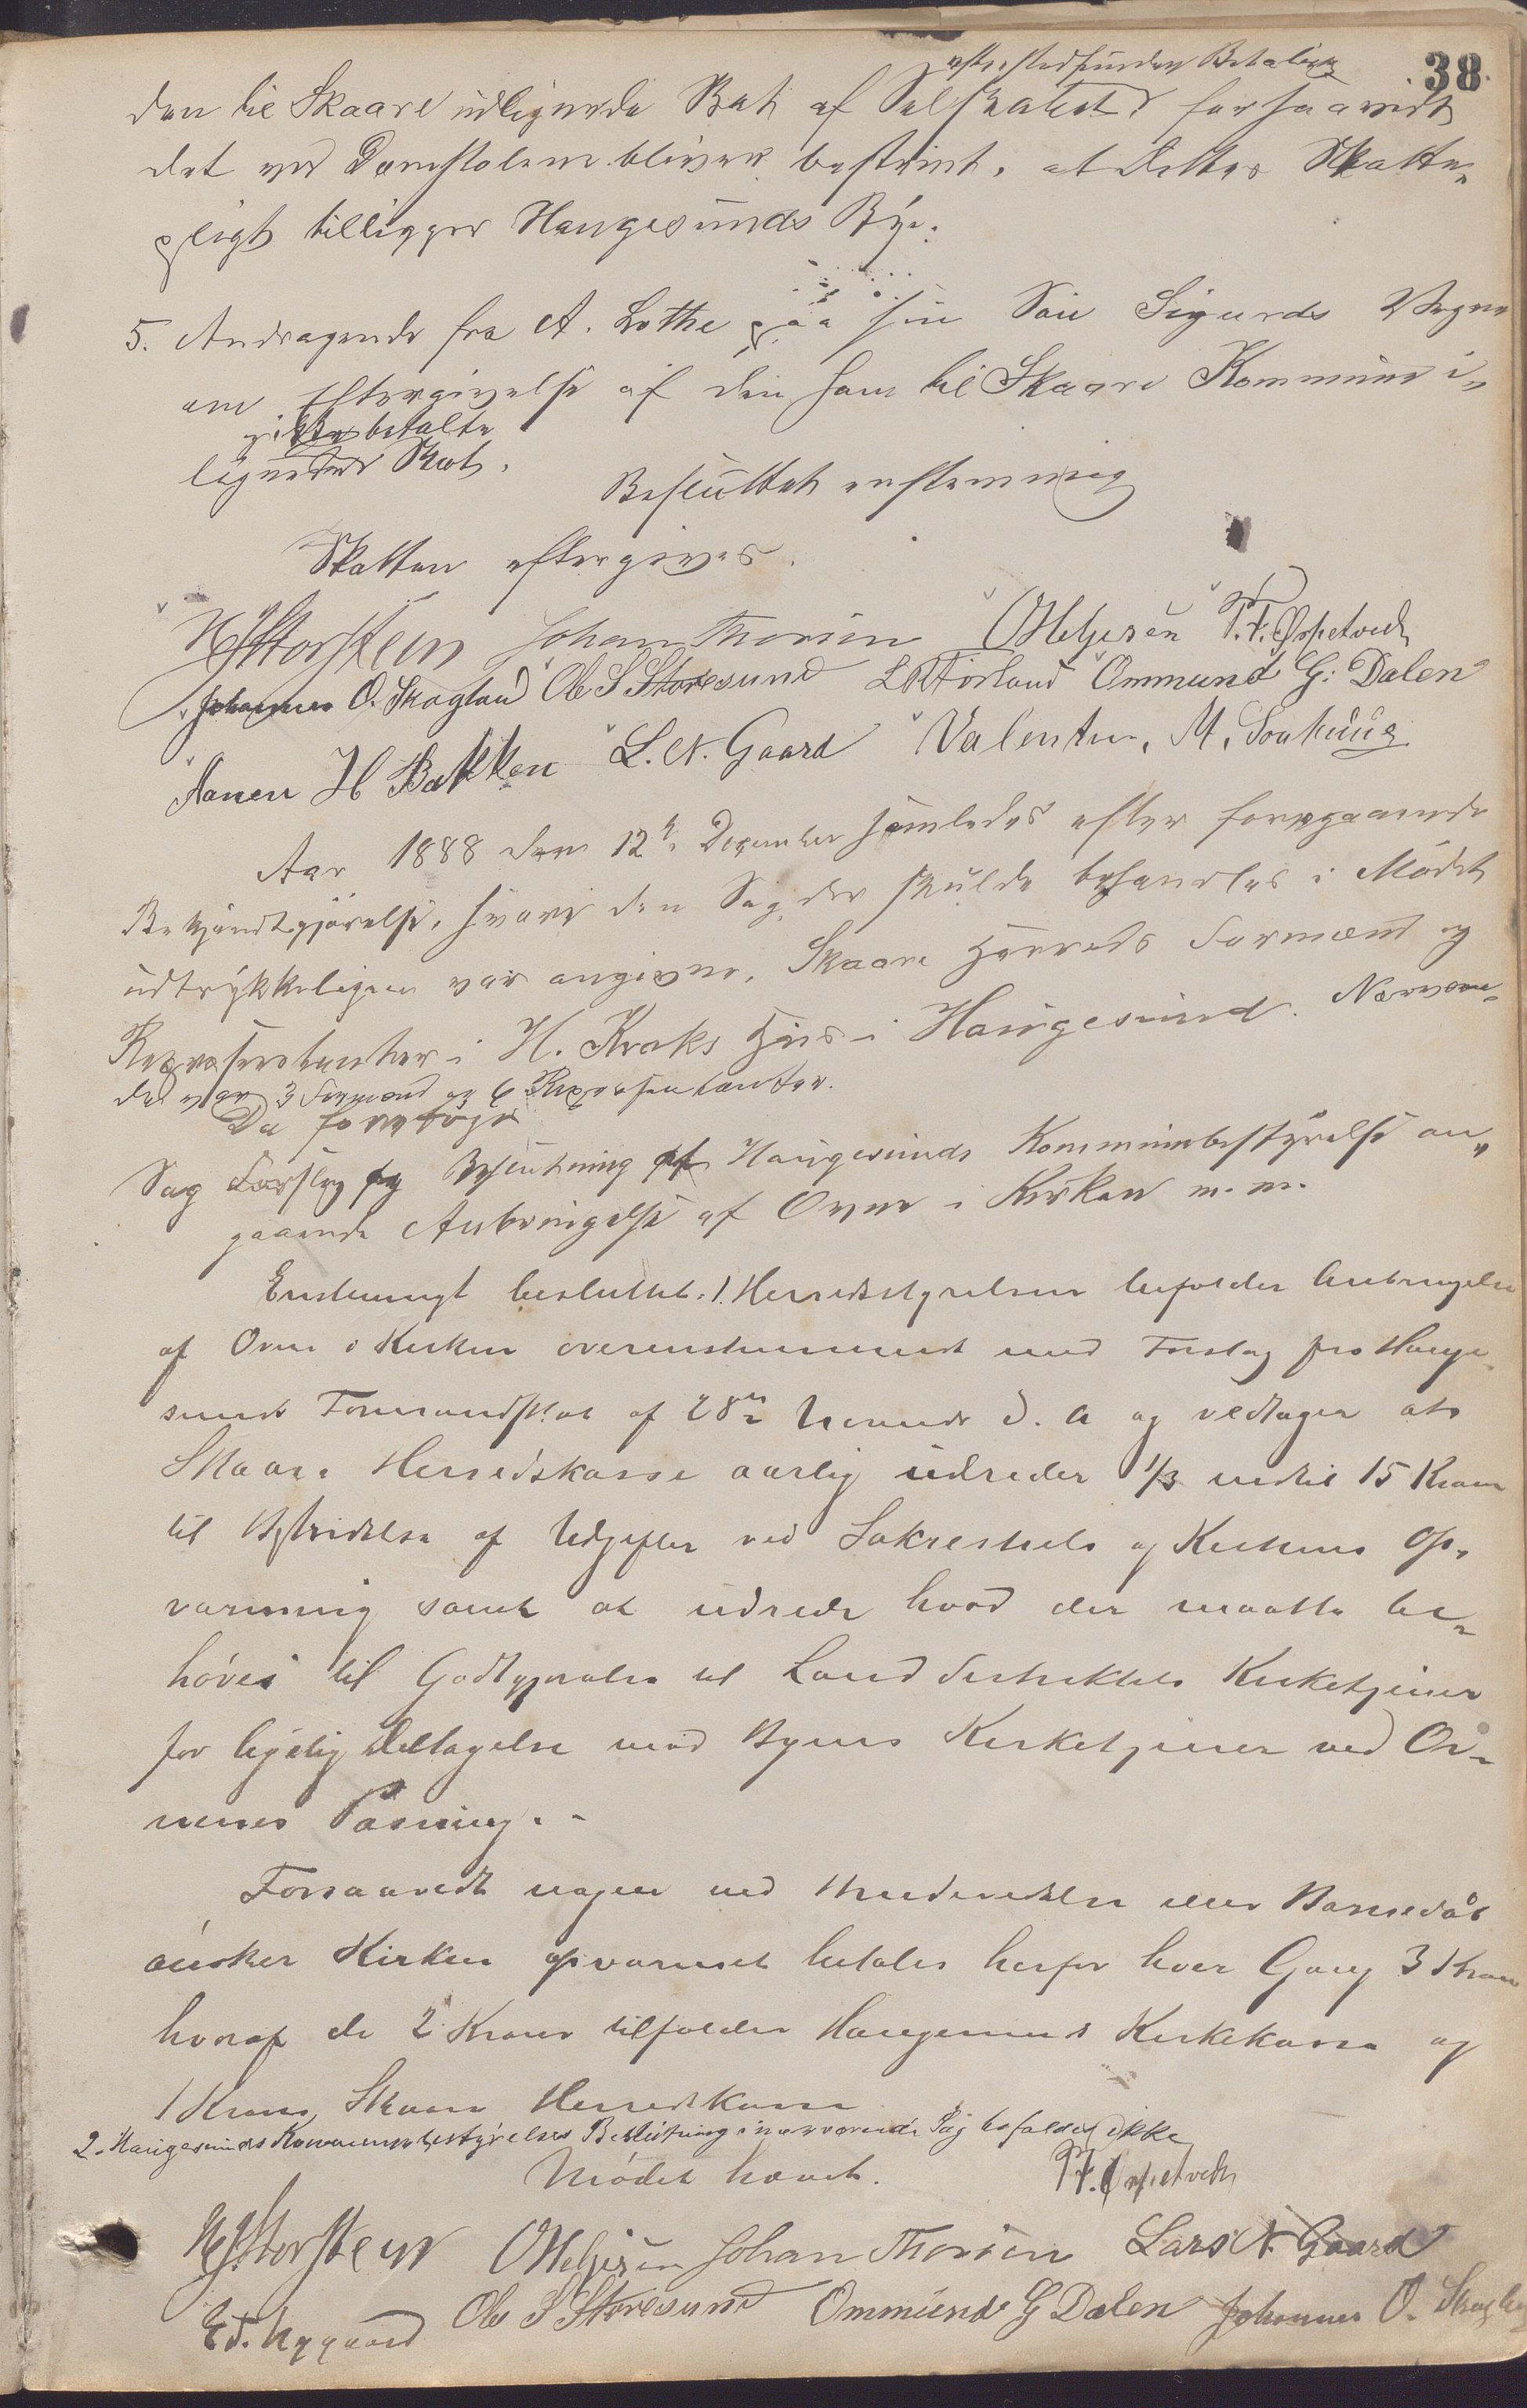 38.
efter stedfunden Betaling
den til Skaare udlignede Skat af Selskabet forsaavidt
det ved Domstolene bliver bestemt, at dettes Skatte-
pligt tilligger Haugesunds By.
5. Andragende fra A. Lothe paa sin Søn Sigurds Vegne
om Eftergivelse af den ham til Skaare Kommune i-
ikke betalte
lignede Skat.
Besluttet enstemmig
Skatten eftergives.
Johan Thorsen OHelgesen T. T. Øspetvedt
Johannes O. Skogland Ole S Storesund Ommund G: Dalen
Aanen H Bakken L. N. Gaard Valentin. M.
Aar 1888 den 12te December samledes efter foregaaende
Bekjendtgjørelse, hvori den Sag, der skulde behandles i Mødet
udtrykkeligen var angivne, Skaare Herreds Formænd og
Repræsentanter i H. Kraks Hus i Haugesund. Nærværen-
de var 3 Formænd og 6 Repræsentanter.
Da foretoges
Sag Forslag og Beslutning af Haugesunds Kommunebestyrelse an-
gaaende Anbringelse af Ovne i Kirken m. m.
Enstemmigt besluttet: 1. Herredsstyrelsen bifalder Anbringelse
af Ovne i Kirken overensstemmende med Forslag fra Hauge-
sunds Formandskab af 28de d. A og vedtager at
Skaare Herredskasse aarlig udreder 1/3 indtil 15 Kroner
til Bestridelse af Udgifter ved Sakresties og Kirkens Op-
varmning samt at udrede hvad der maatte be-
høves til Godtgjørelse til Landdistriktets Kirketjener
for ligelig Deltagelse med Byens Kirketjener ved Ov-
nenes Pasning. -
Forsaavidt nogen ved Brudevielse eller Barnedåb
ønsker Kirken opvarmet betales herfor hver Gang 3 Kroner
hvoraf de 2 Kroner tilfalder Haugesunds Kirkekasse og
1 Krone Skaare Herredskasse
2. Haugesunds Kommunebestyrelses Beslutning i nærværende Sag bifaldes ikke
Mødet hævet. T. T. Øspetvedt
OHelgesen Johan Thorsen Lars N. Gaard
Ed. Nygaard Ole S Storesund Ommund G Dalen Johannes O. Skogland